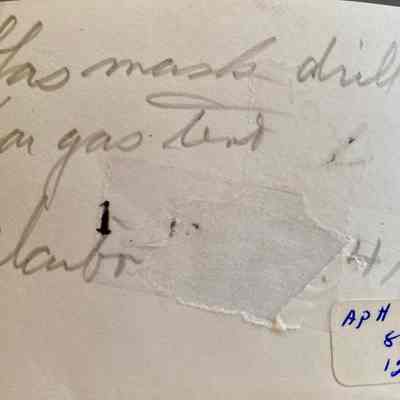 Gas mask drill
for gas tent
1
Claibor
.4
APH
8
12